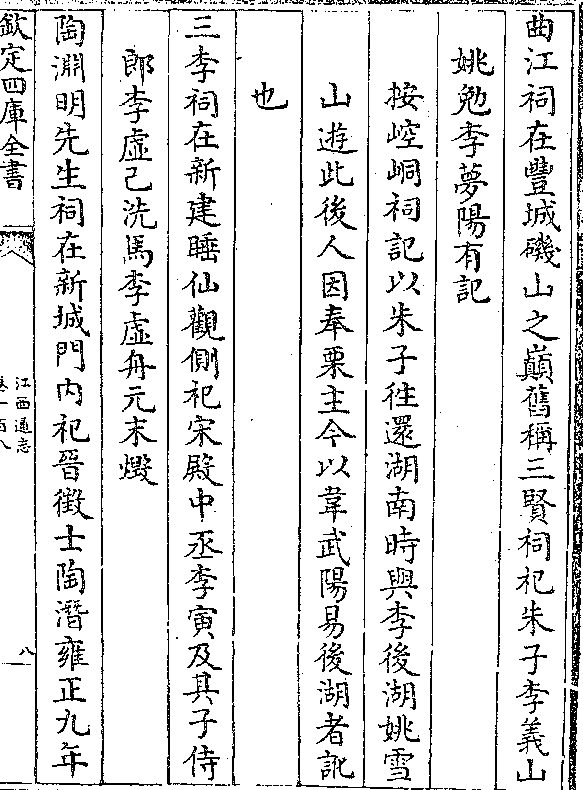 曲江祠在豐城磯山之巔舊稱三賢祠祀朱子李義山
姚勉李夢陽有記
按崆峒祠記以朱子徃還湖南時與李後湖姚雪
山遊此後人因奉栗主今以韋武陽易後湖者訛
也
三李祠在新建睡仙觀側祀宋殿中丞李寅及其子侍
郎李虛己洗馬李虛舟元末燬
陶淵明先生祠在新城門内祀晉徵士陶潛雍正九年
欽定四庫全書
江西通志
卷一百八
八